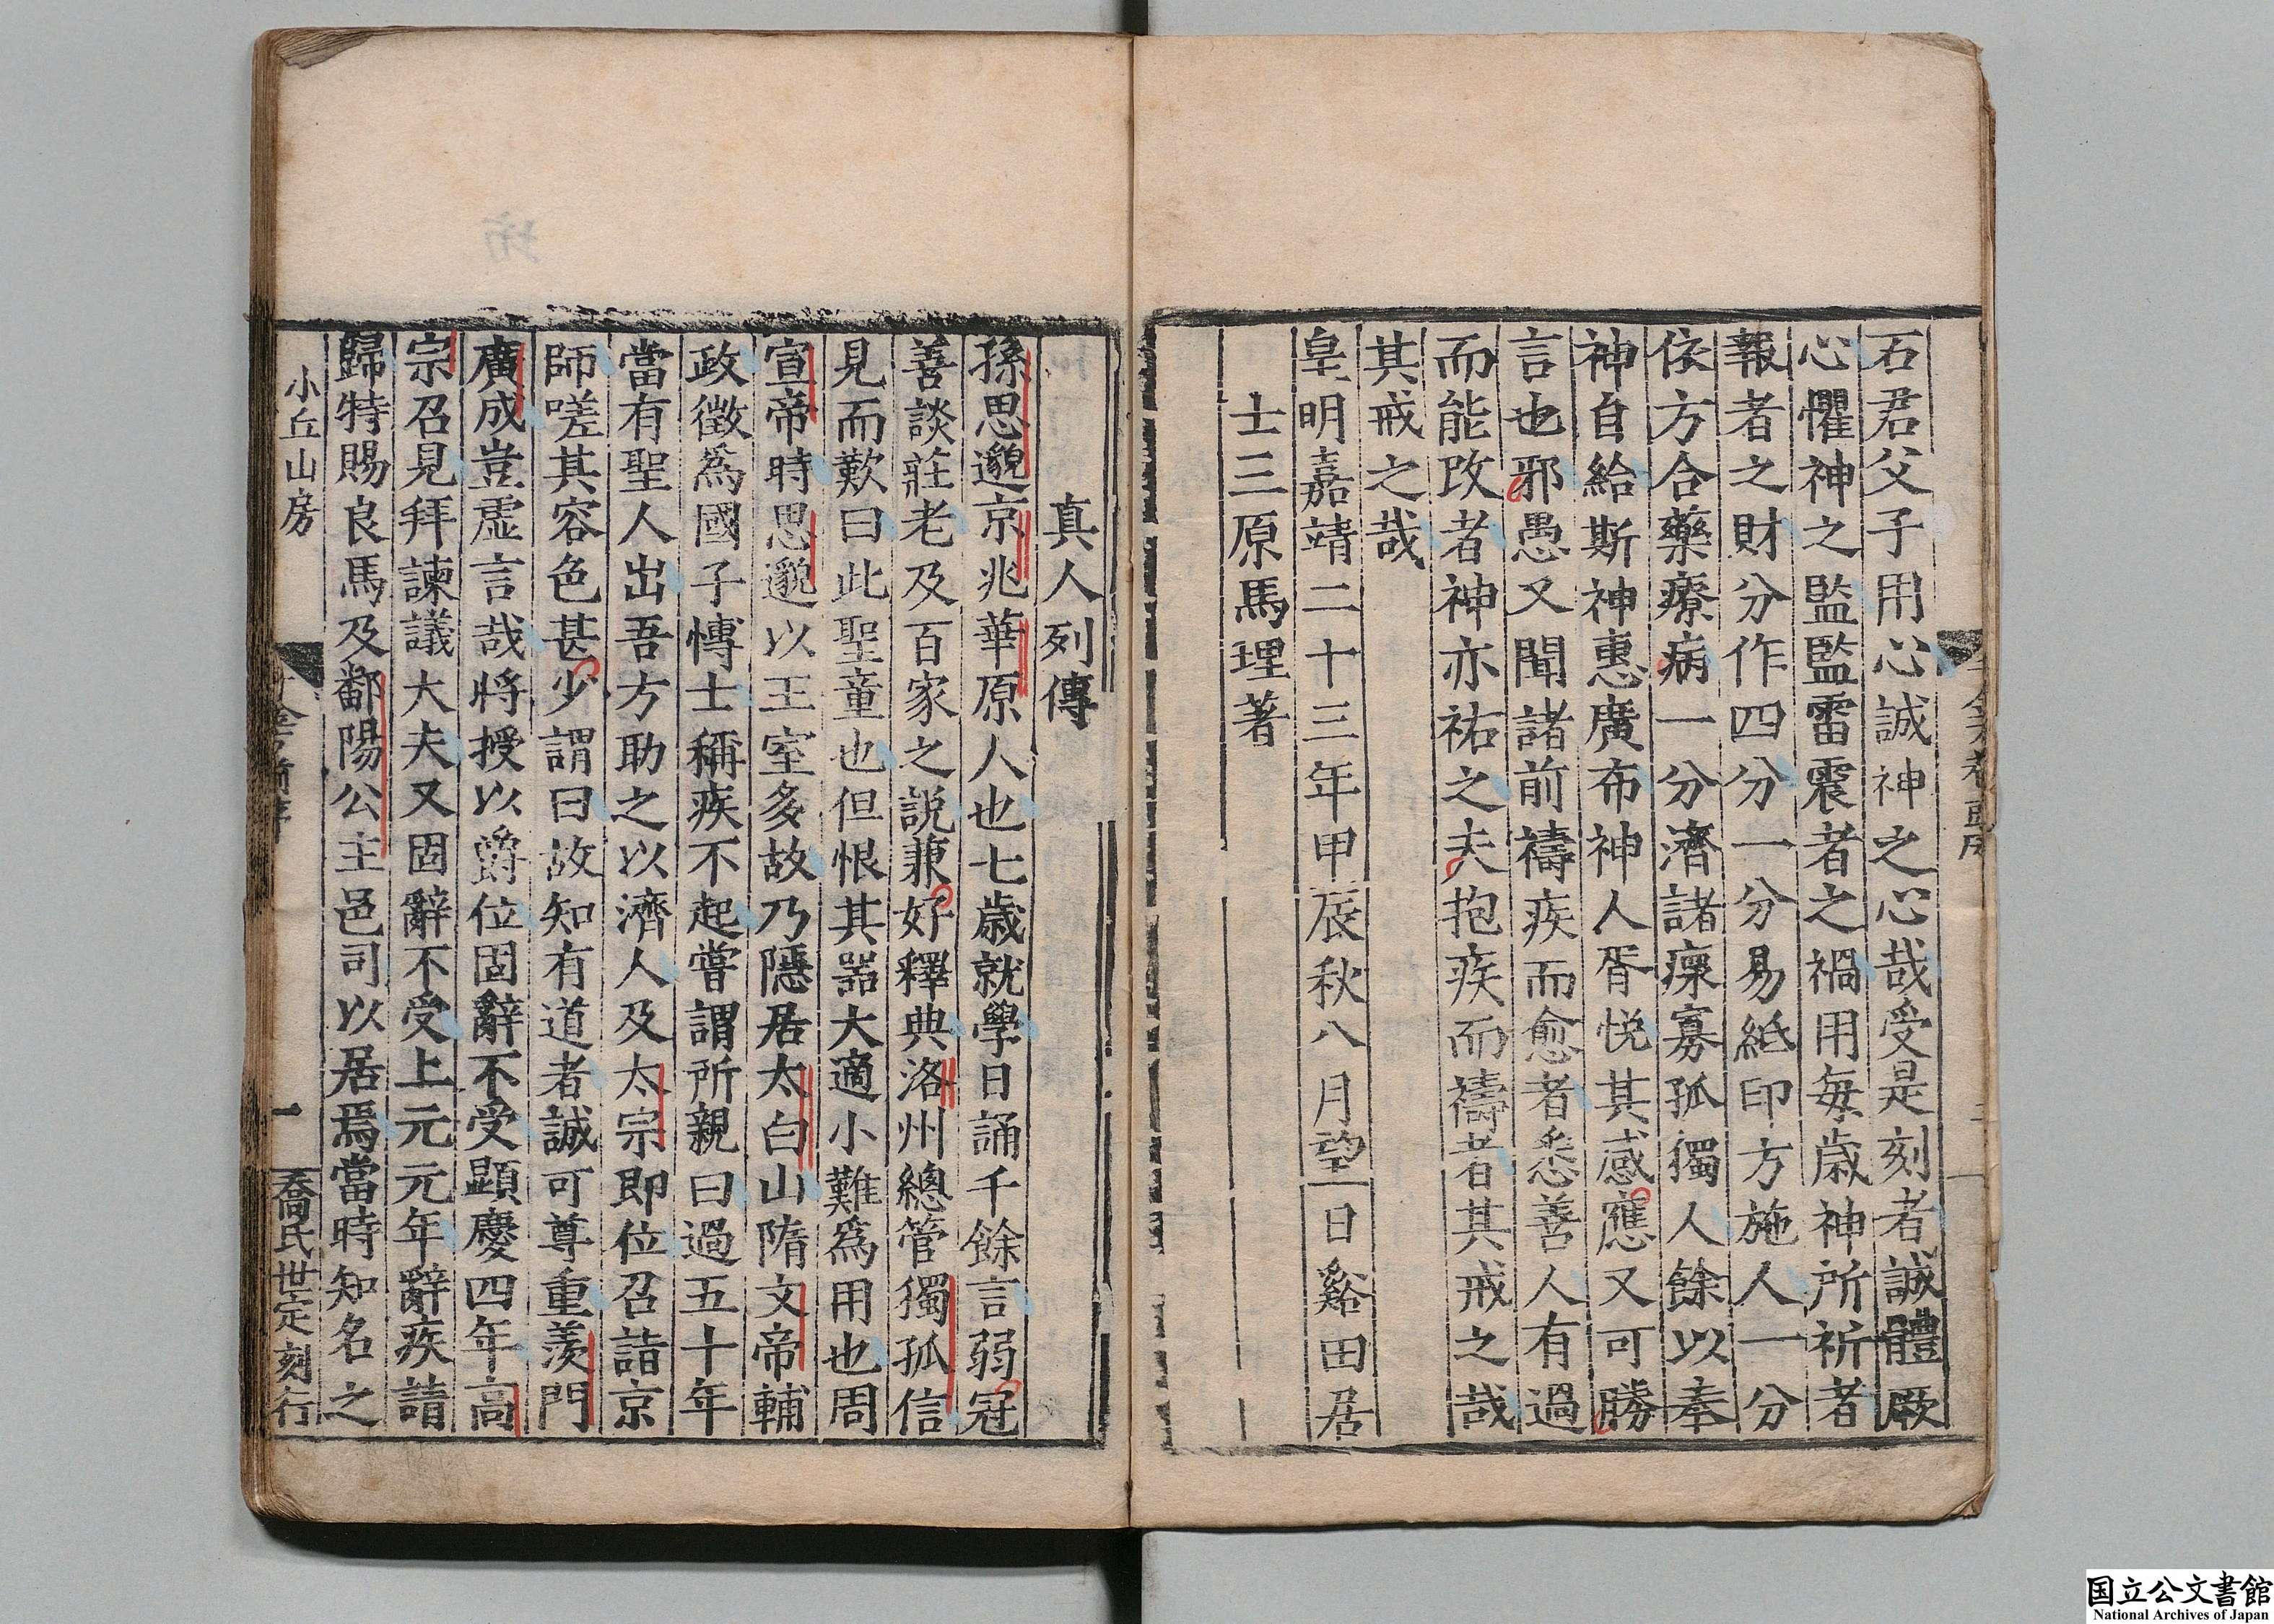 石君父子用心誠神之心哉受是刻者誠體厥
心懼神之監監雷震者之禍用每歲神所祈者
報者之財分作四分一分易紙印方施人一分
依方合藥療病一分濟諸癝寡孤獨人餘以奉
神自給斯神惠廣布神人胥悅其感應又可勝
言也邪愚又聞諸前禱疾而愈者悉善人有過
而能改者神亦祐之夫抱疾而禱者其戒之哉
其戒之哉
皇明嘉靖二十三年甲辰秋八月望一日谿田居
士三原馬理著
真人列傳
孫思邈京兆華原人也七歲就學日誦千餘言弱冠
善談莊老及百家之說兼好釋典洛州總管獨孤信
見而歎曰此聖童也但恨其器大適小難爲用也周
宣帝時思邈以王室多故乃隱居太白山隋文帝輔
政徵爲國子博士稱疾不起嘗謂所親曰過五十年
當有聖人出吾方助之以濟人及太宗即位召詣京
師嗟其容色甚少謂曰故知有道者誠可尊重羨門
廣成豈虛言哉將授以爵位固辭不受顯慶四年高
宗召見拜諫議大夫又固辭不受上元元年辭疾請
歸特賜良馬及鄱陽公主邑司以居焉當時知名之
小丘山房
一
喬氏世定刻行
国立公文書館
National Archives of Japan